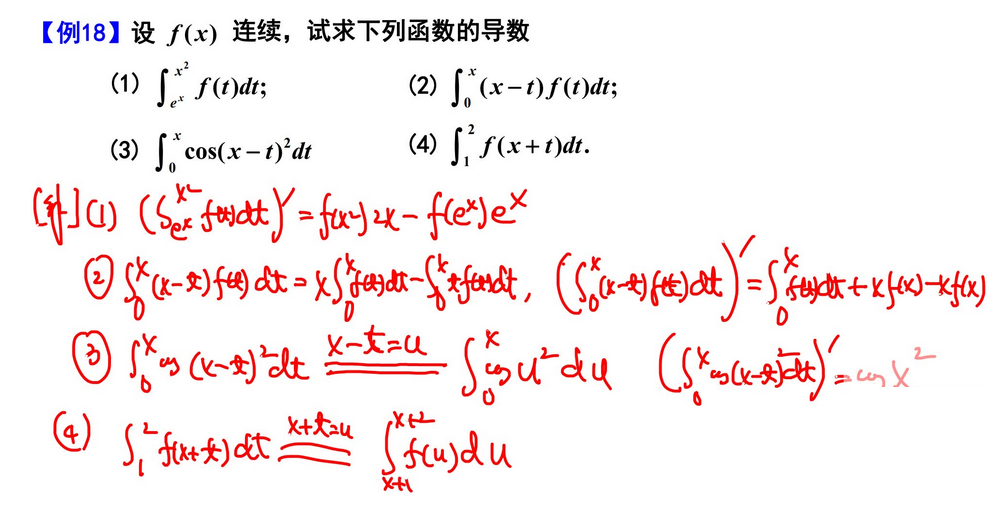 【例18】设 f(x) 连续，试求下列函数的导数
(1) ∫_{e^x}^{x^2} f(t)dt; (2) ∫_0^x (x−t)f(t)dt;
(3) ∫_0^x cos(x−t)^2dt (4) ∫_1^2 f(x+t)dt.
[解] (1) (∫_{e^x}^{x^2} f(t)dt)′ = f(x^2)2x − f(e^x)e^x
② ∫_0^x (x−t)f(t)dt = x∫_0^x f(t)dt − ∫_0^x tf(t)dt, (∫_0^x (x−t)f(t)dt)′ = ∫_0^x f(t)dt + xf(x) − xf(x)
③ ∫_0^x cos(x−t)^2dt x−t=u ∫_0^x cos u^2 du (∫_0^x cos(x−t)^2dt)′ = cos x^2
④ ∫_1^2 f(x+t)dt x+t=u ∫_{x+1}^{x+2} f(u)du